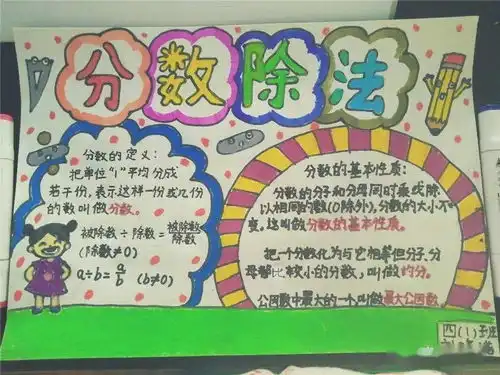 分数除法
分数的定义:
把单位"1"平均分成
若干份,表示这样一份或几份
的数叫做分数。
被除数÷除数=被除数/除数
(除数≠0)
a÷b=a/b (b≠0)
分数的基本性质:
分数的分子和分母同时乘或除
以相同的数(0除外),分数的大小不
变。这叫做分数的基本性质。
把一个分数化为与它相等但分子、分
母都比较小的分数,叫做约分。
公因数中最大的一个叫做最大公因数。
四(1)班